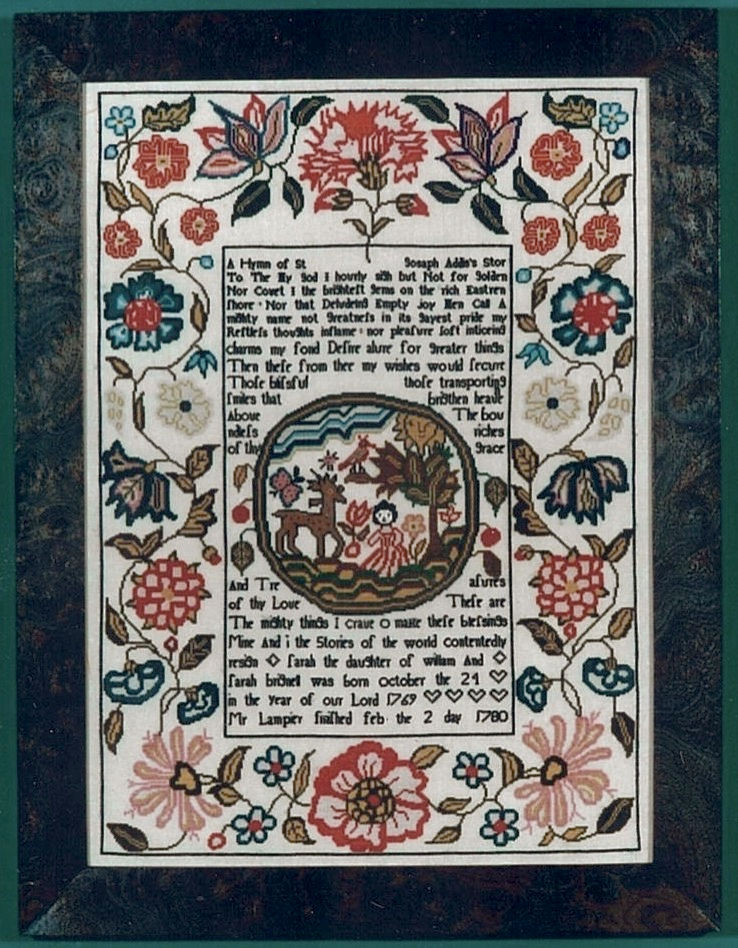 A Hymn of St Josaph Addis's Stor
To The My God I hourly sigh but Not for golden
Nor Covet I the brightest gems on the rich Eastren
shore · Nor that Deludeing Empty Joy Men Call A
mighty name not greatness in its gayest pride my
Restless thoughts inflame · nor pleasure soft inticeing
charms my fond Desire alure for greater things
Then these from ther my wishes would secure
Those blissful those transporting
smiles that brigthen heave
Above The bou
ndless riches
of thy grace
And Tre asures
of thy Love These are
The mighty things I crave o make these blessings
Mine And i the Stories of the world contentedly
resign ◇ sarah the daughter of wiliam And ◇
sarah brignell was born october the 24 ♡
in the year of our Lord 1769 ♡ ♡ ♡ ♡
Mr Lampier finished feb the 2 day 1780